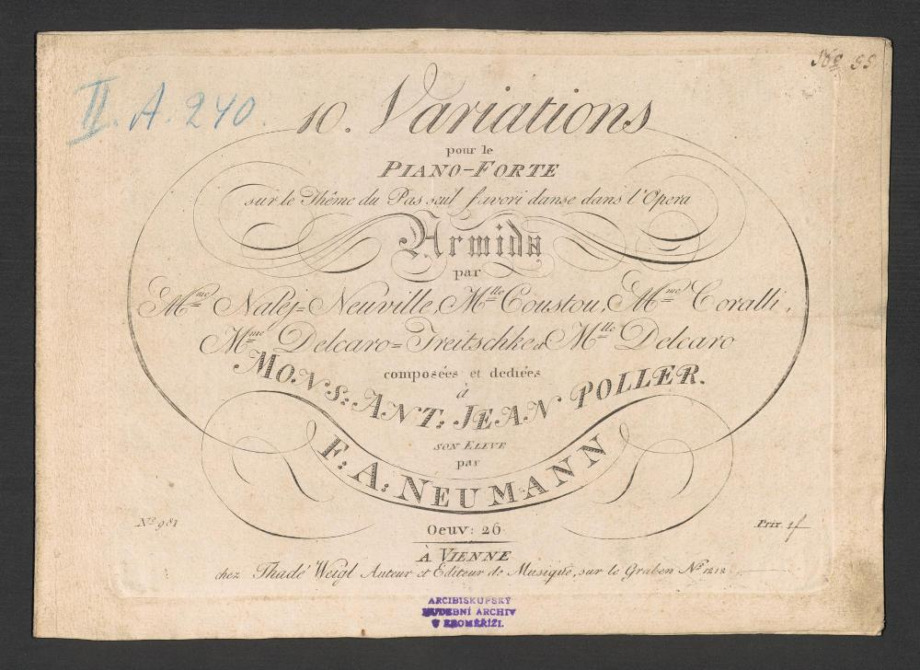 II. A. 240.
55
10. Variations
pour le
PIANO-FORTE
sur le Thême du Pas seul favori danse dans l'Opera
Armida
par
Mme Nalej=Neuville, Mlle Coustou, Mme Coralli,
Mme Delcaro=Treitschke et Mlle Delcaro
composées et dediées
à
MONS: ANT: JEAN POLLER.
SON ELEVE
par
F: A: NEUMANN
No 981
Oeuv: 26.
Prix 1f
À VIENNE
chez Thadé Weigl Auteur et Editeur de Musique, sur le Graben No 1212
ARCIBISKUPSKÝ
HUDEBNÍ ARCHIV
V KROMĚŘÍŽI.